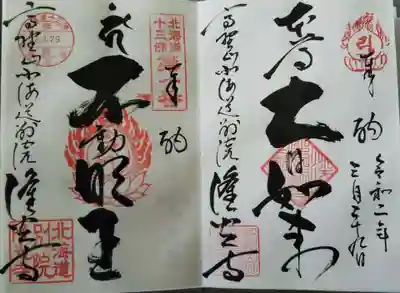 奉拝
令和二年
三月二十九日
大日如来
高野山北海道別院 隆光寺
北海道
十三佛
奉拝
不動明王
高野山北海道別院 隆光寺
北海道
別院